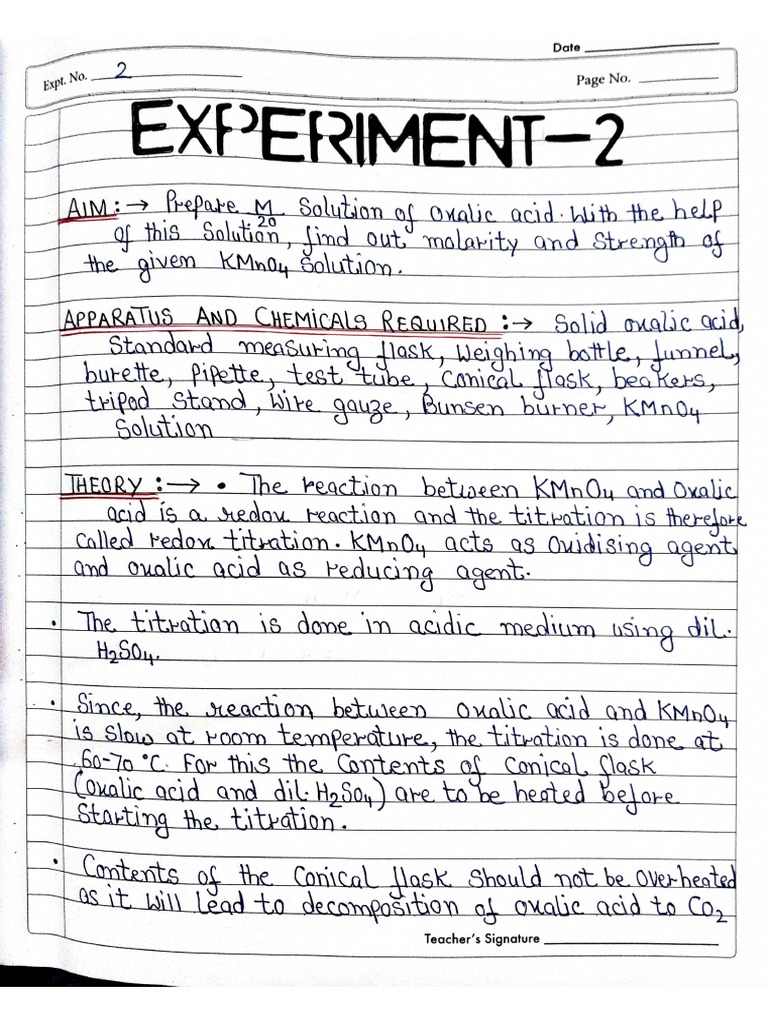 Date
Expt. No. 2
Page No.
EXPERIMENT-2
AIM:→ Prepare M/20 Solution of oxalic acid. With the help
of this Solution, find out molarity and Strength of
the given KMnO4 Solution.
APPARATUS AND CHEMICALS REQUIRED:→ Solid oxalic acid,
Standard measuring flask, Weighing bottle, funnel,
burette, Pipette, test tube, Conical flask, beakers,
tripod Stand, Wire gauze, Bunsen burner, KMnO4
Solution
THEORY:→ • The reaction between KMnO4 and Oxalic
acid is a redox reaction and the titration is therefore
Called redox titration. KMnO4 acts as Oxidising agent
and oxalic acid as reducing agent.
• The titration is done in acidic medium using dil.
H2SO4.
• Since, the reaction between oxalic acid and KMnO4
is slow at room temperature, the titration is done at
60-70 °C. For this the Contents of Conical flask
(oxalic acid and dil. H2SO4) are to be heated before
Starting the titration.
• Contents of the Conical flask Should not be overheated
as it will Lead to decomposition of oxalic acid to CO2
Teacher's Signature